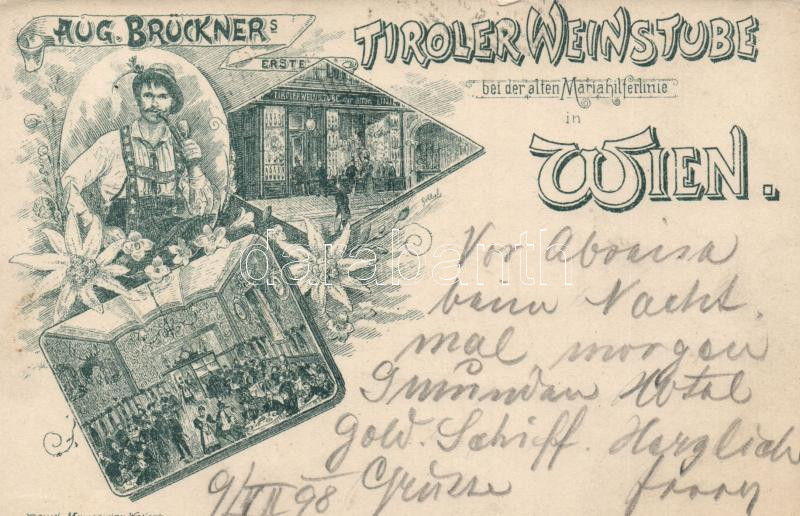 AUG. BRÜCKNERS
ERSTE
TIROLER WEINSTUBE
bei der alten Mariahilferlinie
in
WIEN.
TIROLER WEINSTUBE
Vor Abreise
beim Nacht,
mal morgen
Gmunden Hotel
Gold. Schiff. Herzlich
Grüsse
9/VII 98
darabanth